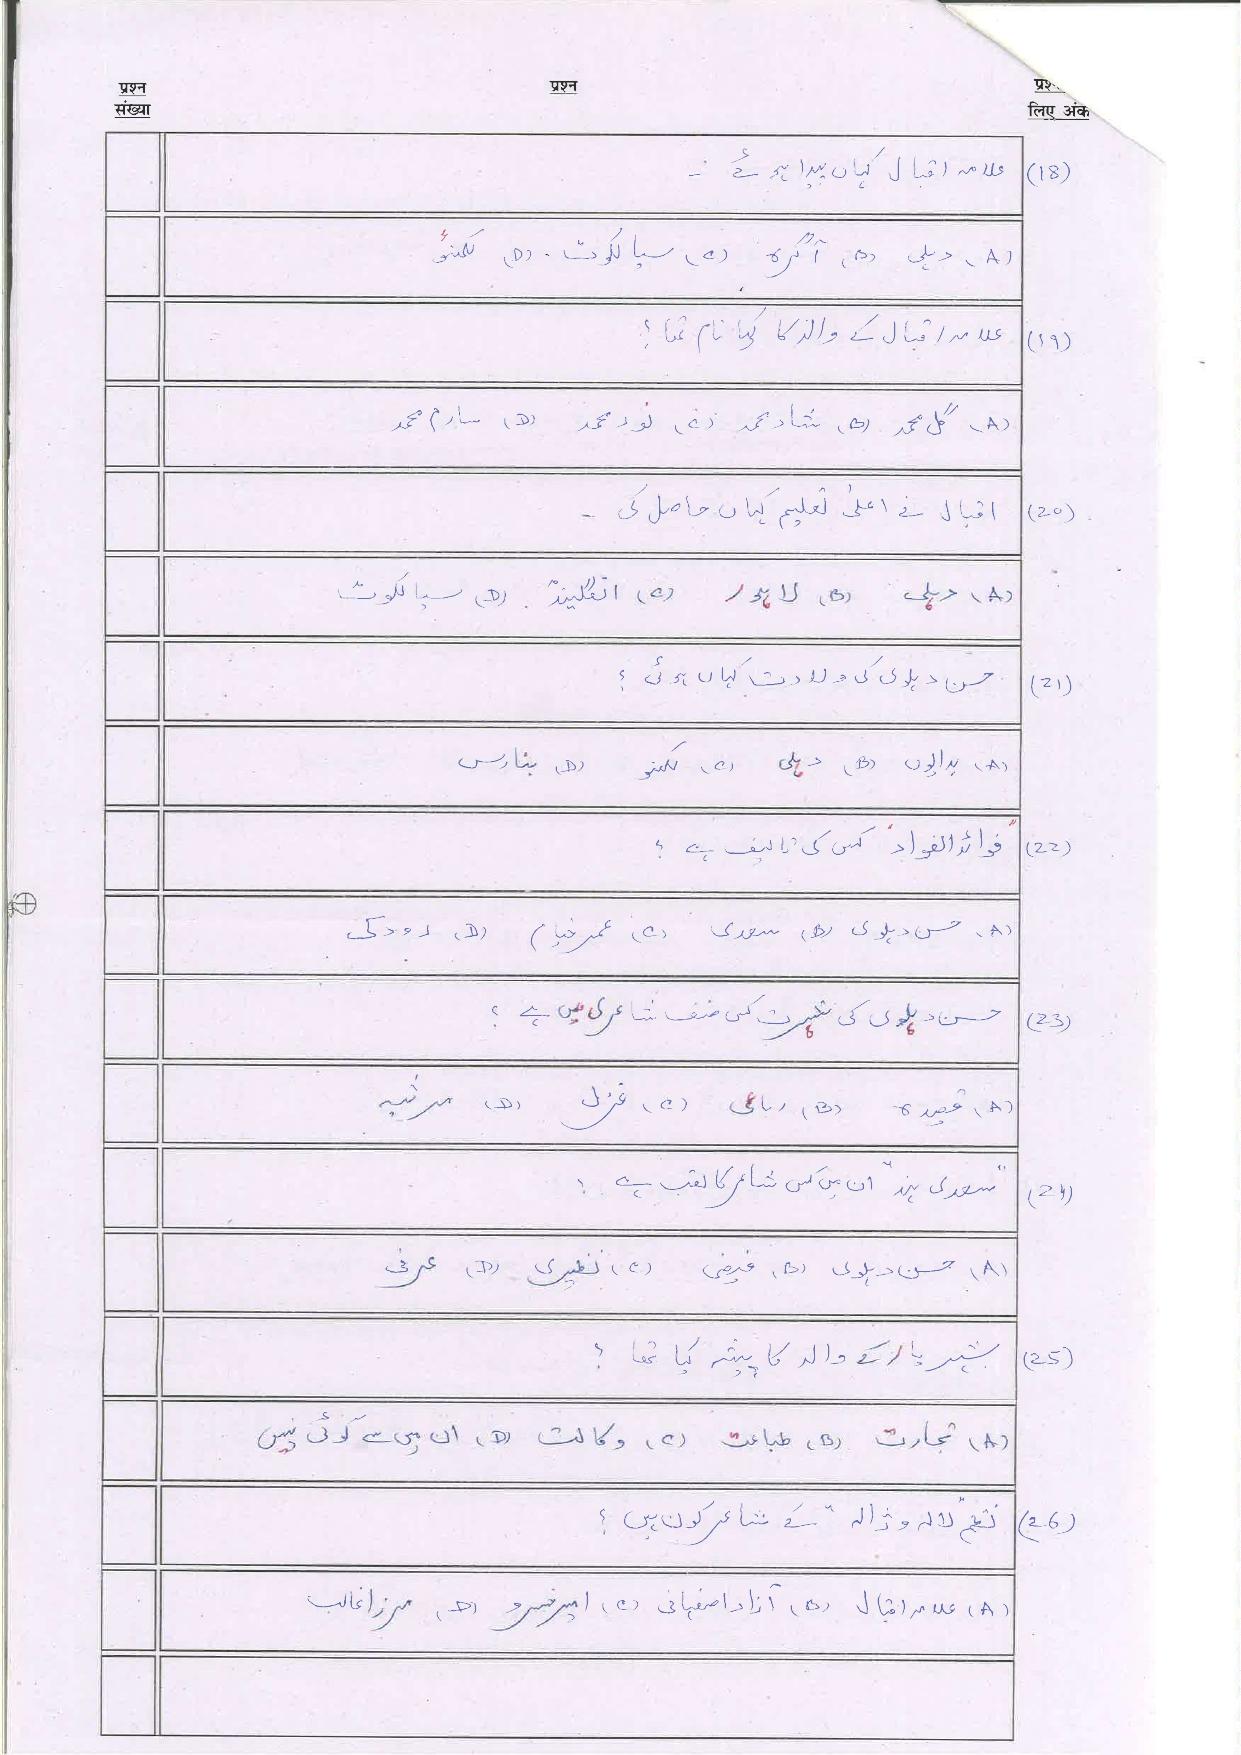 प्रश्न संख्या
प्रश्न
प्रश्न लिए अंक
(18) علامہ اقبال کہاں پیدا ہوئے ۔
(A) دہلی (B) آگرہ (C) سیالکوٹ (D) لکھنؤ
(19) علامہ اقبال کے والد کا کیا نام تھا؟
(A) گل محمد (B) شاد محمد (C) نور محمد (D) سارم محمد
(20) اقبال نے اعلیٰ تعلیم کہاں حاصل کی ۔
(A) دہلی (B) لاہور (C) انگلینڈ (D) سیالکوٹ
(21) حسن دہلوی کی ولادت کہاں ہوئی ؟
(A) بدایوں (B) دہلی (C) لکھنو (D) بنارس
(22) "فوائد الفواد" کس کی تالیف ہے ؟
(A) حسن دہلوی (B) سعدی (C) عمر خیام (D) رودکی
(23) حسن دہلوی کی شہرت کس صنف شاعری میں ہے ؟
(A) قصیدہ (B) رباعی (C) غزل (D) مرثیہ
(24) "سعدی ہند" ان میں کس شاعر کا لقب ہے ؟
(A) حسن دہلوی (B) فیضی (C) نظیری (D) عرفی
(25) شہر یار کے والد کا پیشہ کیا تھا ؟
(A) تجارت (B) طباعت (C) وکالت (D) ان میں سے کوئی نہیں
(26) نظم "لالہ و ژالہ" کے شاعر کون ہیں ؟
(A) علامہ اقبال (B) آزاد اصفہانی (C) امیر خسرو (D) مرزا غالب